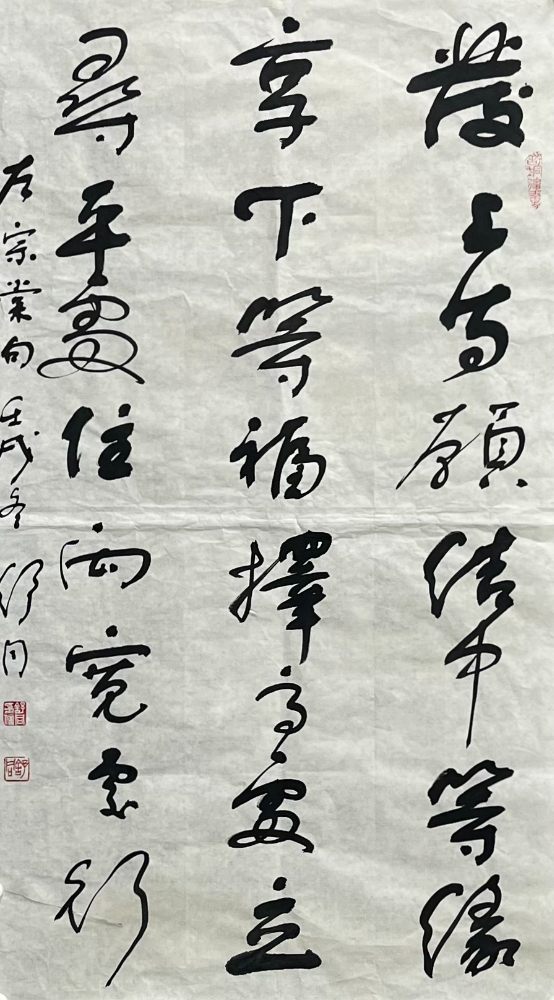 發上等願結中等緣
享下等福擇高處立
尋平處住向寬處行
左宗棠句 壬戌冬 舒同